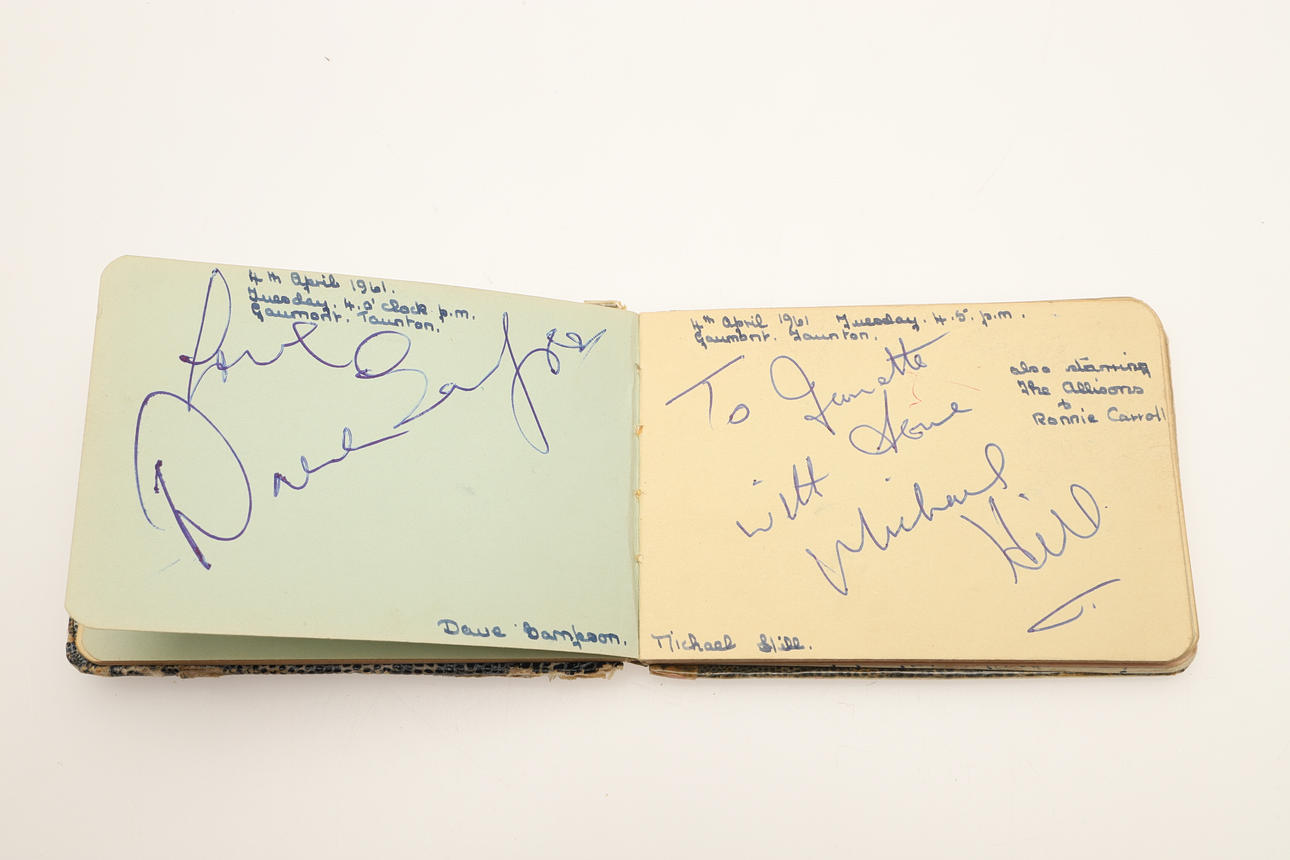 4th April 1961.
Tuesday. 4. o'clock p.m.
Gaumont. Taunton.
Love
Dave Sampson
Dave Sampson.
4th April 1961 Tuesday. 4.5. p.m.
Gaumont. Taunton.
also starring
The Allisons
&
Ronnie Carroll
To Janette
with Love
Michael
Hill
Michael Hill.